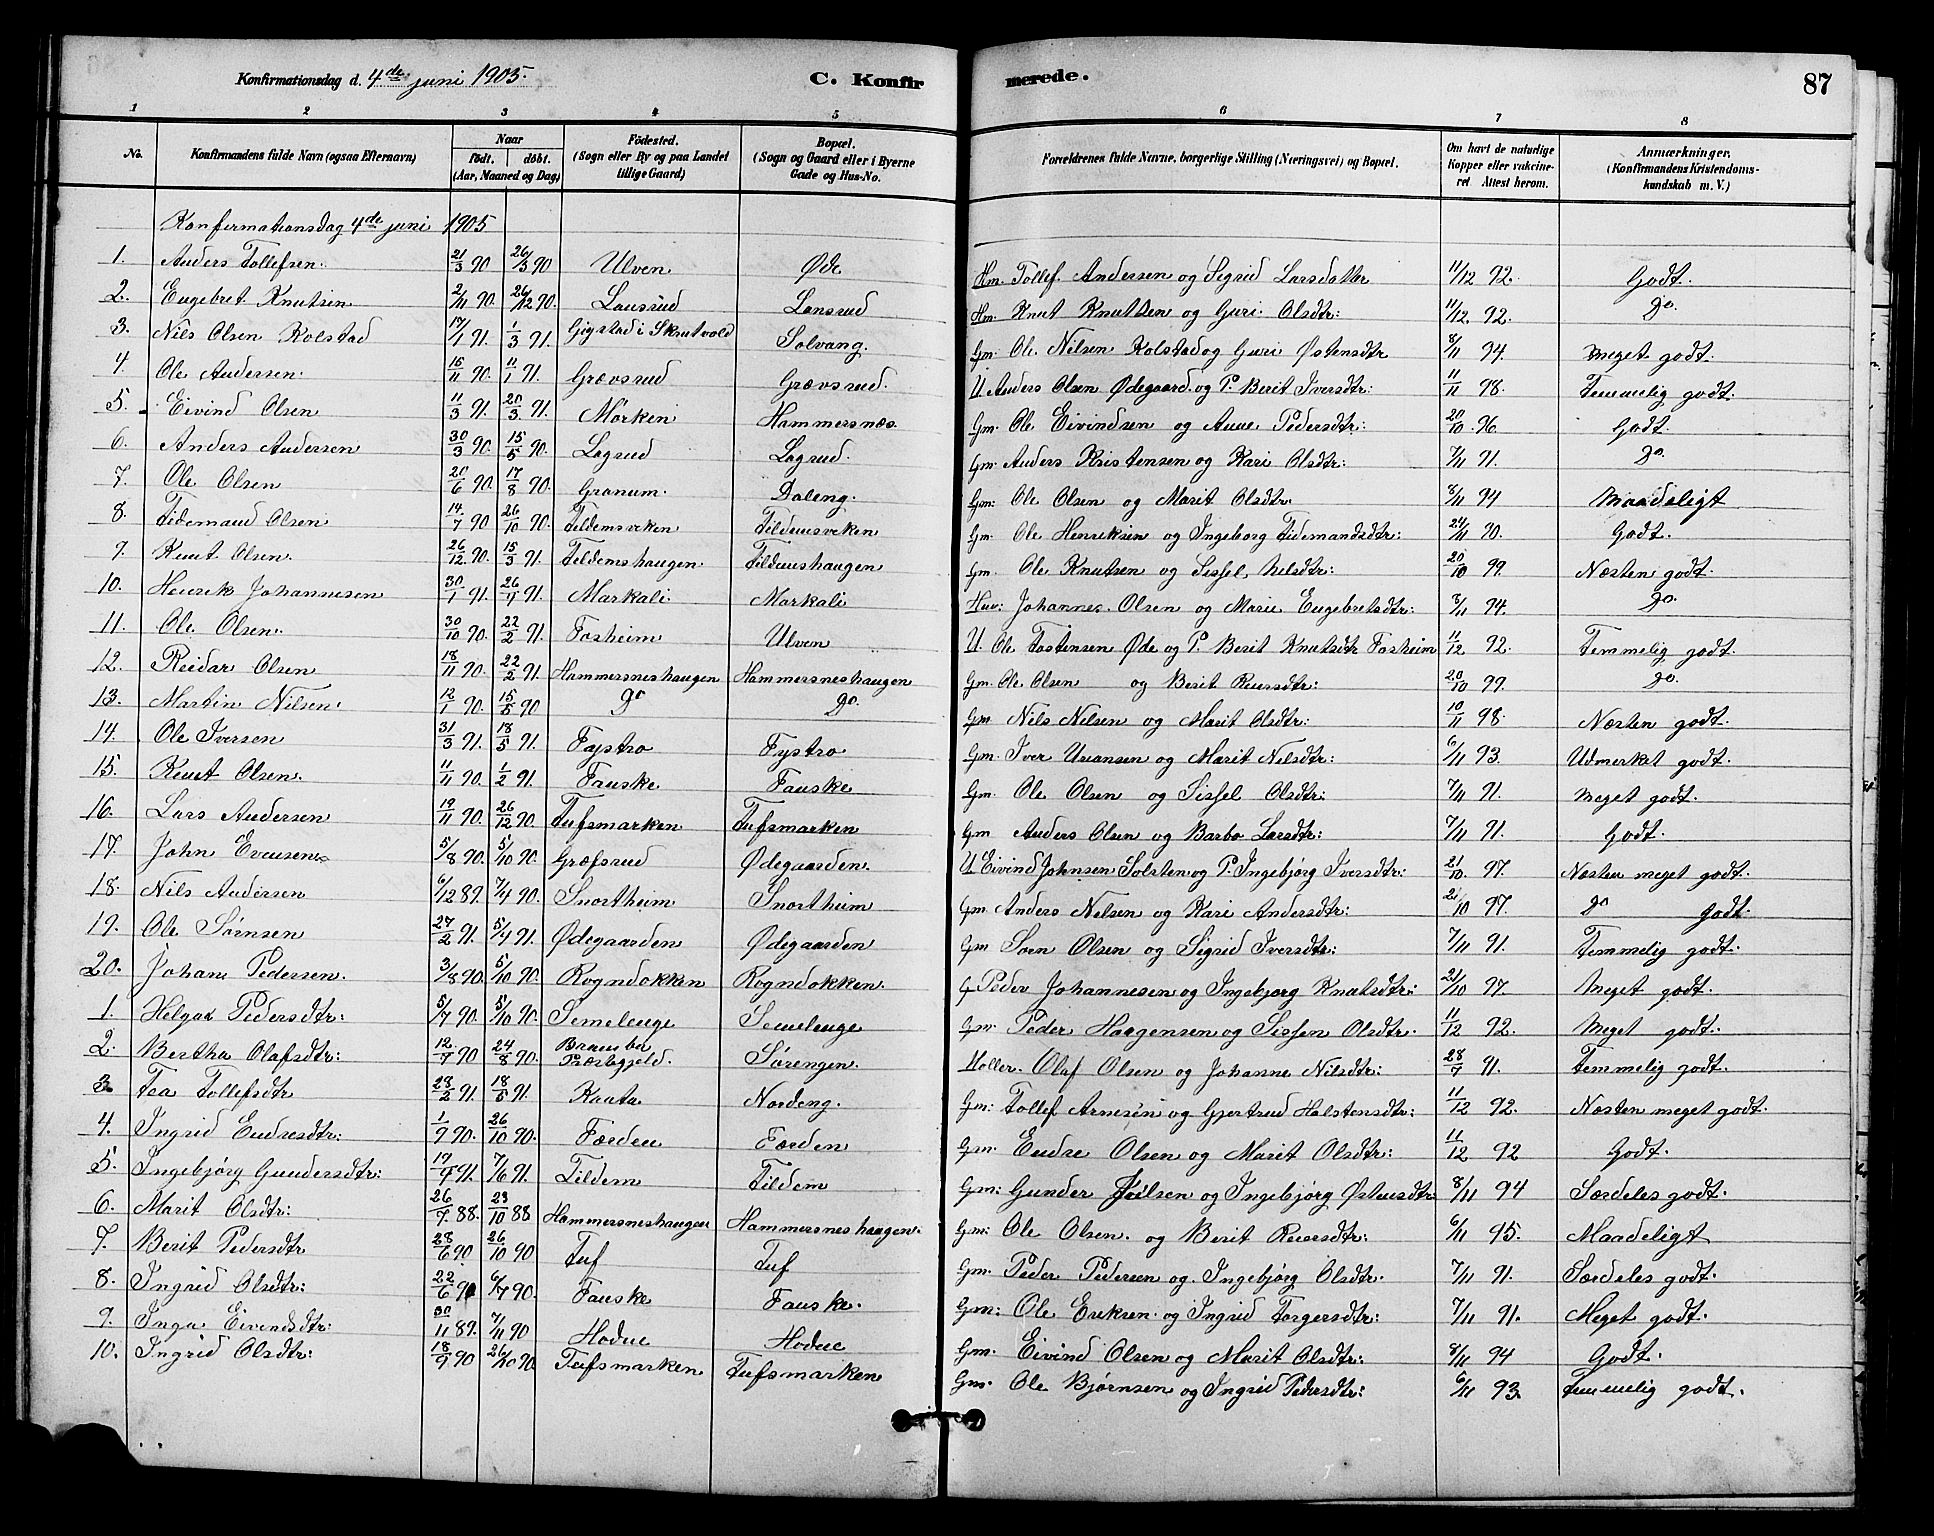 Konfirmationsdag d. 4de juni 1905.
C. Konfirmerede.
87
1 2 3 4 5 6 7 8
No. Konfirmandens fulde Navn (ogsaa Efternavn) Naar Födt. döbt. (Aar, Maaned og Dag) Födested. (Sogn eller By og paa Landet tillige Gaard) Bopæl. (Sogn og Gaard eller i Byerne Gade og Hus-No. Forældrenes fulde Navne, borgerlige Stilling (Næringsvei) og Bopæl. Om havt de naturlige Kopper eller vakcineret. Attest herom. Anmærkninger. (Konfirmandens Kristendomskundskab m. V.)
Konfirmationsdag 4de juni 1905
1. Anders Tollefsen. 21/3 90 26/3 90 Ulven Øde Hm. Tollef Andersen og Sigrid Larsdatter 11/12 92. Godt.
2. Engebret Knutsen 2/11 90. 26/12 90. Lansrud Lansrud Hm. Knut Knutsen og Guri Olsdtr: 11/12 92. Do.
3. Nils Olsen Kolstad 17/1 91. 1/3 91. Gigstad i Skrutvold Solvang. Gm. Ole Nilsen Kolstad og Guri Østensdtr 8/11 94. Meget godt.
4. Ole Andersen. 15/11 90. 11/1 91. Grævsrud Grævsrud. U. Anders Olsen Ødegaard og P. Berit Iversdtr: 11/11 98. Temmelig godt.
5. Eivind Olsen 11/3 91. 20/3 91. Mörken Hammersnæs. Gm. Ole Eivindsen og Anne Pedersdtr: 20/10 96. Godt.
6. Anders Andersen 30/3 90. 15/5 90. Lagrud Lagrud. Gm. Anders Kristensen og Kari Olsdtr: 7/11 91. Do.
7. Ole Olsen 20/6 90. 17/8 90. Granum. Daleng. Gm: Ole Olsen og Marit Olsdtr. 8/11 94 Maadeligt
8. Tidemand Olsen 14/7 90 26/10 90. Tildemsveken Tildemsveken Gm. Ole Henriksen og Ingeborg Tidemandsdtr: 24/11 90. Godt.
9. Knut Olsen. 26/12 90. 15/3 91. Tildemshaugen Tildemshaugen Gm. Ole Knutsen og Sissel Nilsdtr: 20/10 99. Næsten godt.
10. Henrik Johannesen 30/1 91. 26/4 91. Markali Markali Huv: Johannes Olsen og Marie Engebretsdtr: 3/11 94. Do.
11. Ole Olsen. 30/10 90. 22/2 91. Fosheim Ulven U. Ole Tostensen Øde og P. Berit Knutsdtr Fosheim 11/12 92. Temmelig godt.
12. Reidar Olsen 18/11 90. 22/2 91. Hammersneshaugen Hammersneshaugen Gm. Ole Olsen og Berit Reiersdtr: 20/10 99. Do.
13. Martin Nilsen. 12/1 90. 15/5 90 Do Do. Gm Nils Nilsen og Marit Olsdtr: 10/11 98. Næsten godt.
14. Ole Iversen 31/3 91. 18/5 91. Fystro Fystro Gm. Iver og Marit Nilsdtr: 6/11 93. Udmerket godt.
15. Knut Olsen. 11/11 90. 1/2 91 Fauske Fauske Gm. Ole Olsen og Sissel Olsdtr: 7/11 91. Meget godt.
16. Lars Andersen 19/11 90. 26/12 90. Tufsmarken Tufsmarken Gm Anders Olsen og Barbo Larsdtr: 7/11 91. Godt.
17. John Evensen 5/8 90. 5/10 90. Græfsrud Ødegaarden. U. Eivind Johnsen Solsten og P. Ingebjørg Iversdtr: 21/10 97. Næsten meget godt.
18. Nils Andersen 6/12 89. 7/4 90. Snortheim Snortheim Gm. Anders Nilsen og Kari Andersdtr: 21/10 97. Do Godt.
19. Ole Sørnsen 27/2 91. 5/4 91. Ødegaarden Ødegaarden Gm Søren Olsen og Sigrid Iversdtr: 7/11 91. Temmelig godt.
20. Johan Pedersen. 3/8 90. 5/10 90. Rogndokken Rogndokken. G Peder Johannesen og Ingebjørg Knutsdtr: 21/10 97. Meget godt.
1. Helga Pedersdtr: 5/7 90. 5/10 90. Semelenge Semelenge Gm: Peder Haagensen og Sissen Olsdtr. 11/12 92. Meget godt.
2. Bertha Olafsdtr: 12/7 90 24/8 90. Præstegjeld. Sørengen. Møller. Olaf Olsen og Johanne Nilsdtr: 28/7 91. Temmelig godt.
3. Tea Tollefsdtr 23/2 91. 18/5 91. Kaata Nordeng. Gm: Tollef Arnesen og Gjertrud Halstensdtr: 11/12 92. Næsten meget godt.
4. Ingrid Endresdtr: 1/9 90. 26/10 90. Færden Færden Gm. Endre Olsen og Marit Olsdtr: 11/12 92 Godt.
5. Ingebjørg Gundersdtr: 91. 7/6 91. Tildem Tildem Gm: Gunder og Ingebjørg Østensdtr 8/11 94 Særdeles godt.
6. Marit Olsdtr: 26/7 88. 23/10 88 Hammersneshaugen Hammersneshaugen. Gm: Ole Olsen. og Berit Reiersdtr: 6/11 95. Maadeligt
7. Berit Pedersdtr 28/6 90. 26/10 90 Tuf Tuf Gm. Peder Pedersen og Ingebjørg Olsdtr. 7/11 91. Særdeles godt.
8. Ingrid Olsdtr: 22/6 90 6/7 90. Fauske Fauske. Gm: Ole Eriksen og Ingrid Torgersdtr: 7/11 91. Meget godt.
9. Inga Eivendsdtr: 30/11 89. 7/11 90 Hodne Hodne Gm. Eivind Olsen og Marit Olsdtr: 8/11 94 Godt.
10. Ingrid Olsdtr: 18/9 90 26/10 90. Tufsmarken Tufsmarken Gm. Ole Bjørnsen og Ingrid Pedersdtr: 6/11 93. Temmelig godt.